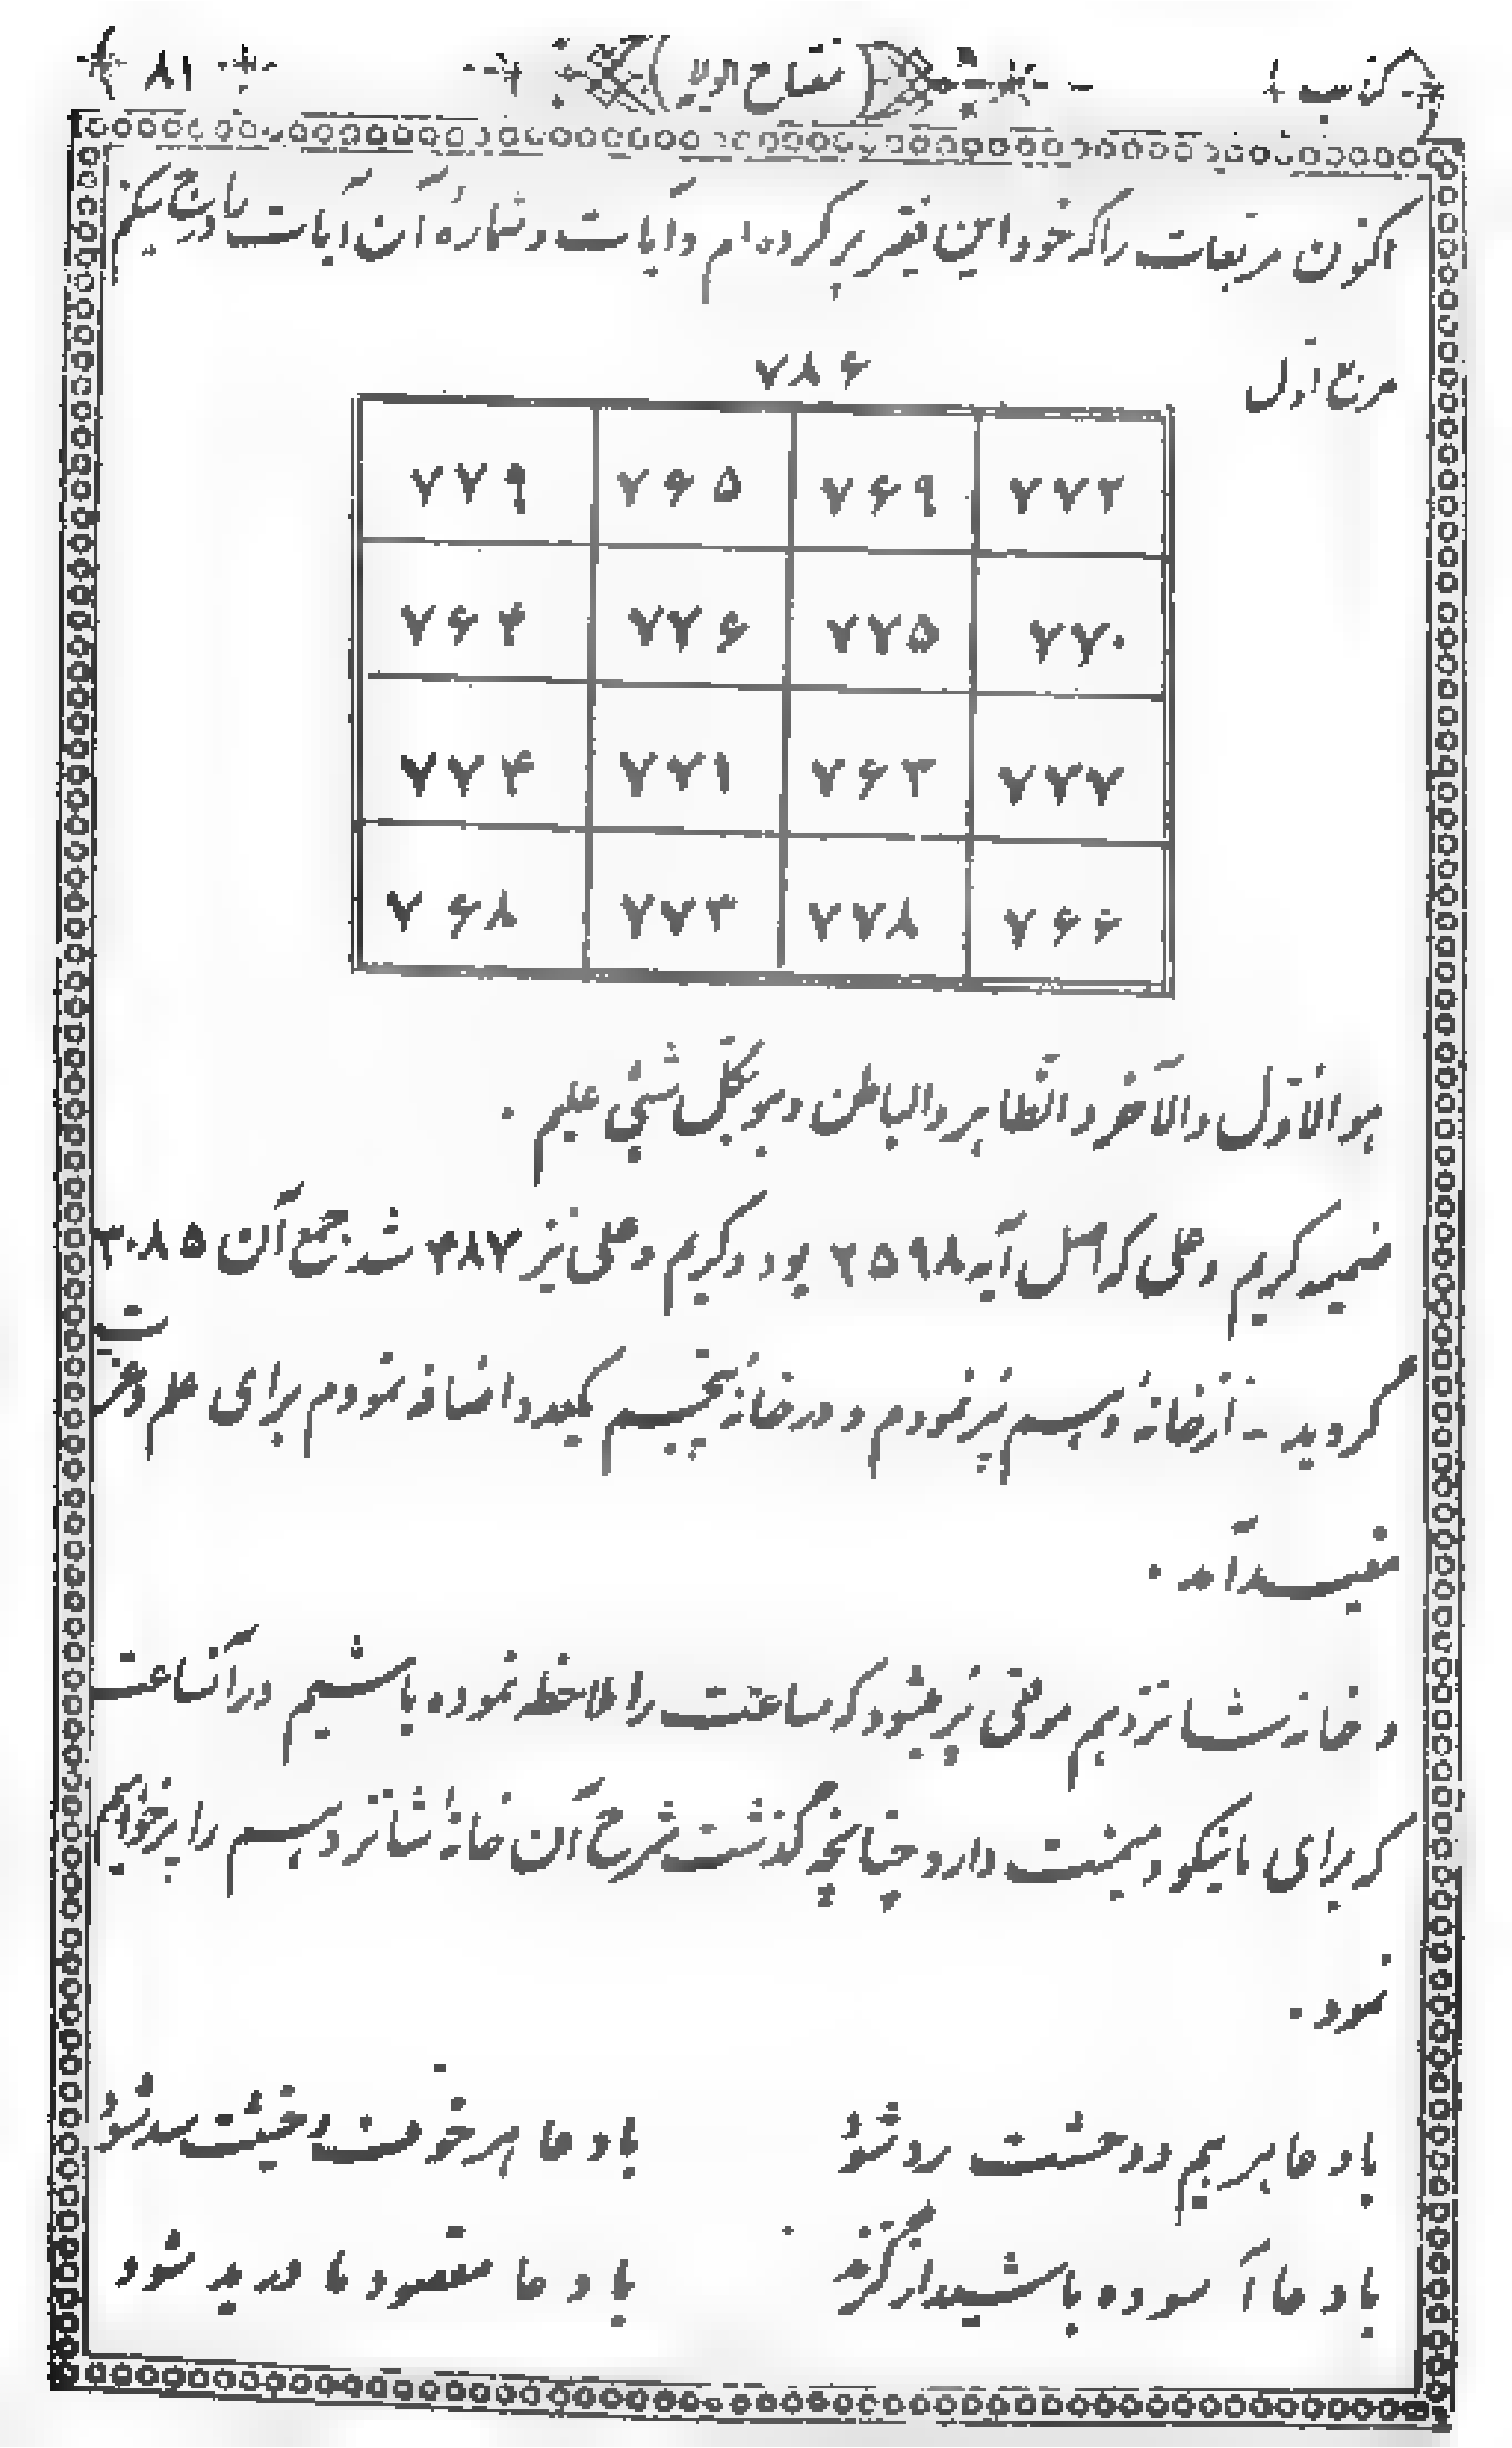 کتاب ( مفتاح الولایه ) ۸۱
اکنون مربعات را که خود این فقیر پر کرده‌ام و آیات و شمارهٔ آن آیات را درج میکنم
مربع اوّل
۷۸۶
۷۷۹ ۷۶۵ ۷۶۹ ۷۷۲
۷۶۴ ۷۷۶ ۷۷۵ ۷۷۰
۷۷۴ ۷۷۱ ۷۶۳ ۷۷۷
۷۶۸ ۷۷۳ ۷۷۸ ۷۶۶
هو الاوّل والآخر والظاهر والباطن وهو بکلّ شیئی علیم .
ضمیمه کریم و علی که اصل آیه ۲۵۹۸ بود و کریم و علی نیز ۴۸۷ شد جمع آن ۳۰۸۵
گردید - از خانهٔ دهم پر نمودم و در خانهٔ پنجم یکعدد اضافه نمودم برای علم و عزت
مفید آمد .
و خانه شانزدهم موقعی پر میشود که ساعت را ملاحظه نموده باشیم در آنساعت
که برای ما نیکو و میمنت دارد چنانچه گذشت شرح آن خانهٔ شانزدهم را پر خواهیم
نمود .
با دعا هر بیم و وحشت رد شود با دعا هر خوف و خشیت سد شود
با دعا آسوده باشید از گزند با دعا مقصود ما در ید شود